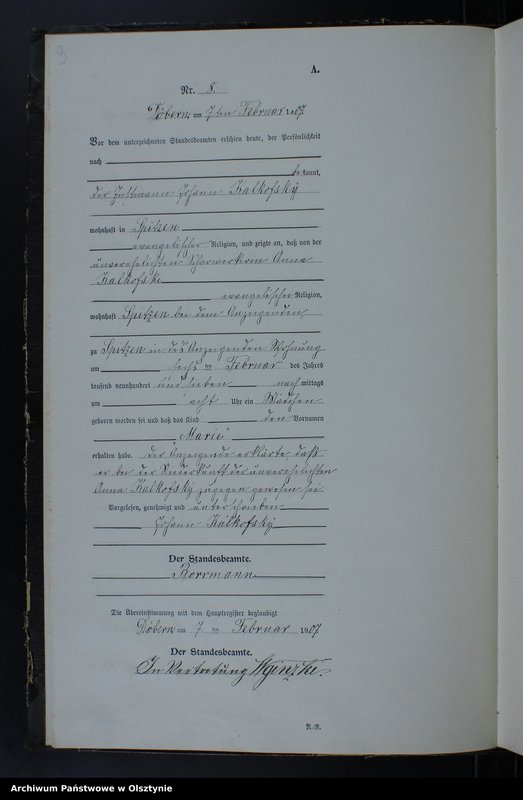 9
A.
Nr. 8.
Döbern am 7ten Februar 1907.
Vor dem unterzeichneten Standesbeamten erschien heute, der Persönlichkeit
nach
bekannt,
der Instmann Johann Kalkofsky
wohnhaft in Spitzen
evangelischer Religion, und zeigte an, daß von der
unverehelichten Scharwerkerin Anna
Kalkofski
evangelischer Religion,
wohnhaft Spitzen bei dem Anzeigenden
zu Spitzen in des Anzeigenden Wohnung
am sechs ten Februar des Jahres
tausend neunhundert und sieben nach mittags
um acht Uhr ein Mädchen
geboren worden sei und daß das Kind den Vornamen
"Marie"
erhalten habe. Der Anzeigende erklärte daß
er bei der Niederkunft der unverehelichten
Anna Kalkofsky zugegen gewesen sei.
Vorgelesen, genehmigt und unterschrieben
Johann Kalkofsky
Der Standesbeamte.
Borrmann
Die Übereinstimmung mit dem Hauptregister beglaubigt
Döbern am 7 ten Februar 1907.
Der Standesbeamte.
In Vertretung
N.-R.
Archiwum Państwowe w Olsztynie